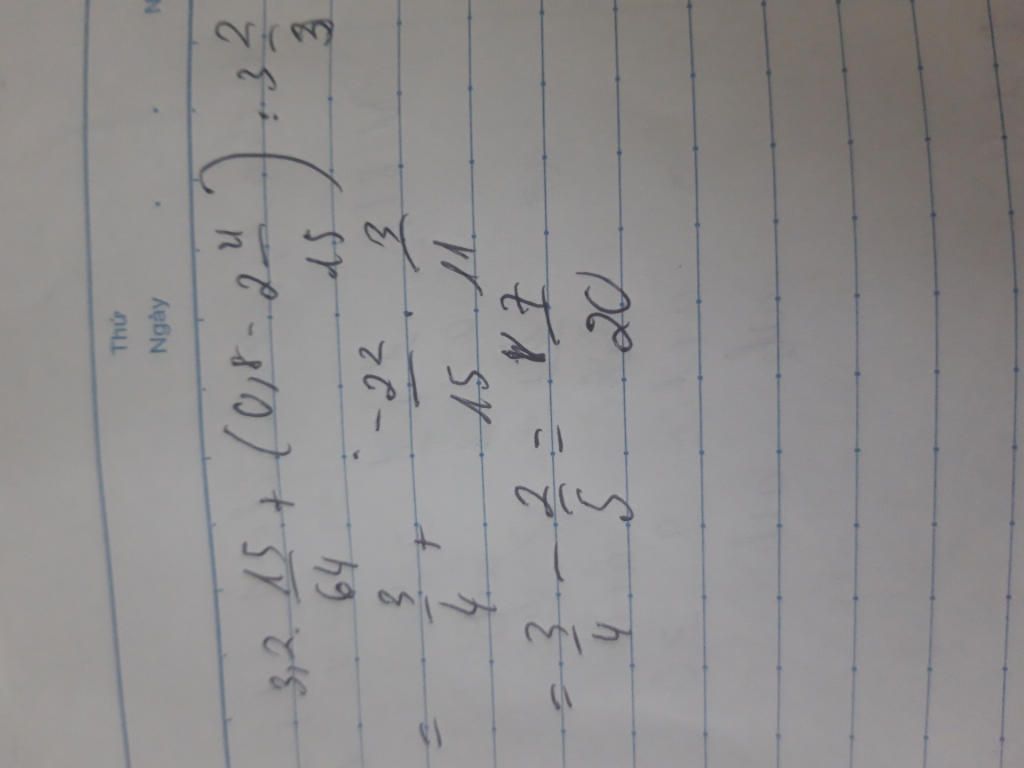 Thứ
Ngày
3,2 . 15/64 + (0,8 - 2 4/15) : 3 2/3
= 3/4 + -22/15 . 3/11
= 3/4 - 2/5 = 7/20